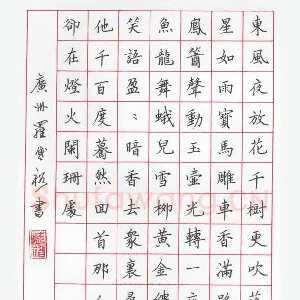 東風夜放花千樹更吹落
星如雨寶馬雕車香滿路
鳳簫聲動玉壺光轉一夜
魚龍舞蛾兒雪柳黃金縷
笑語盈〻暗香去眾裏尋
他千百度驀然回首那人
卻在燈火闌珊處
廣州羅書